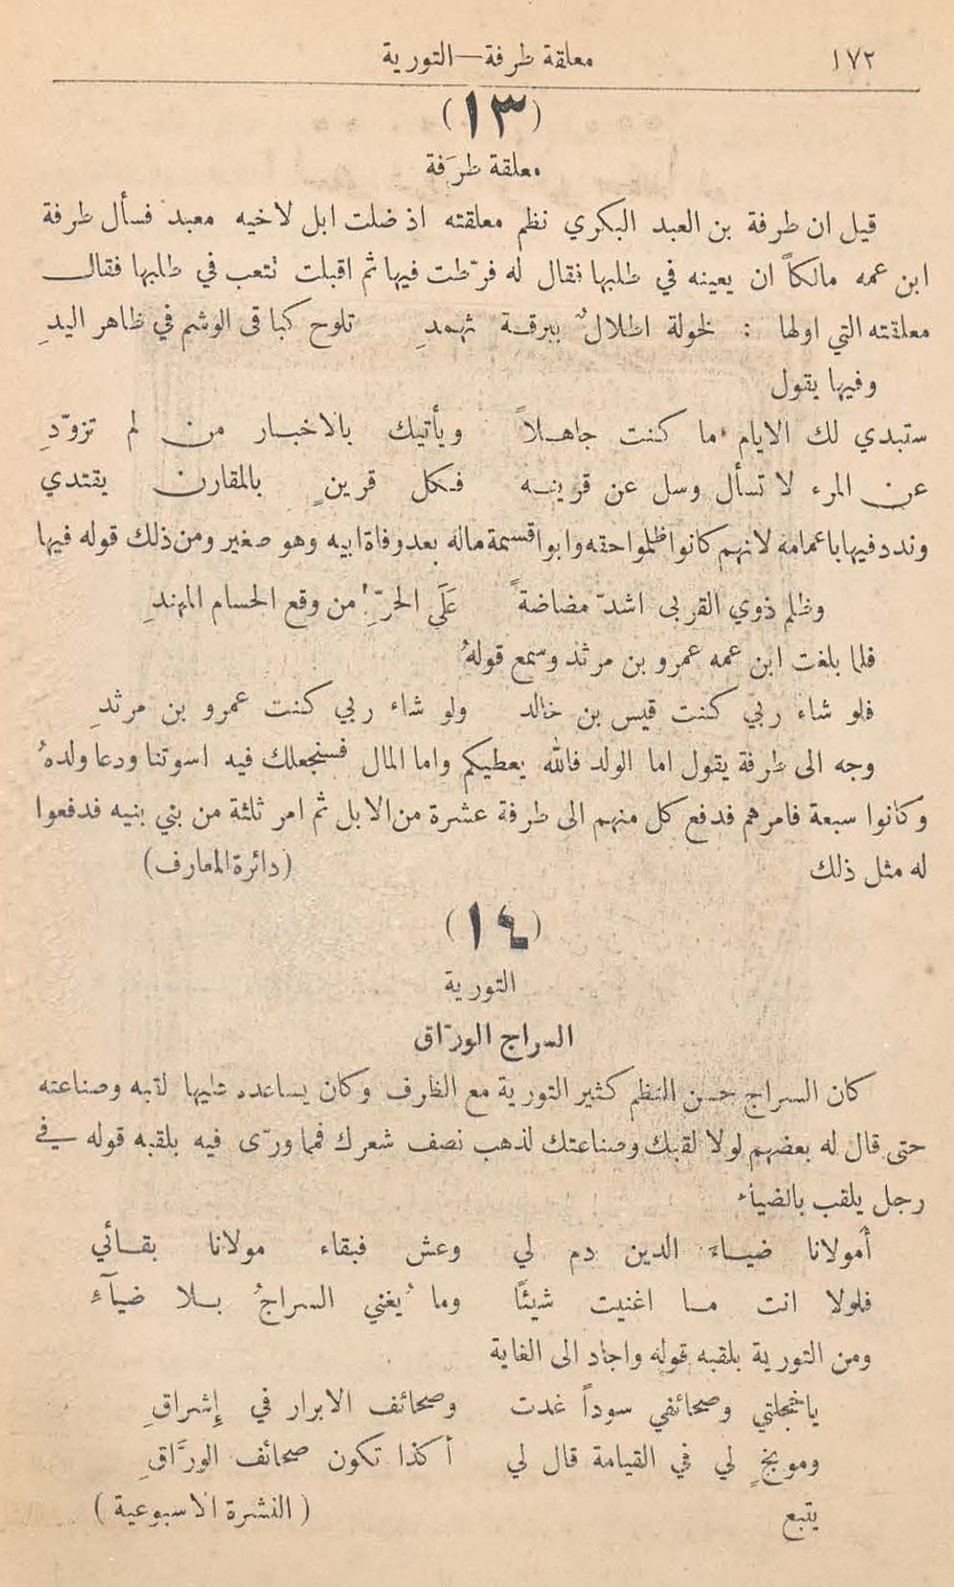 ١٧٢ معلقة طرفة—التورية
(١٣)
معلقة طرَفة
قيل ان طرفة بن العبد البكري نظم معلقته اذ ضلت ابل لاخيه معبد فسأل طرفة
ابن عمه مالكاً ان يعينه في طلبها فقال له فرّطت فيها ثم اقبلت تتعب في طلبها فقال
معلقته التي اولها : لخولة اطلالٌ ببرقة ثهمدِ تلوح كباقى الوشم في ظاهر اليدِ
وفيها يقول
ستبدي لك الايام ما كنت جاهلاً ويأتيك بالاخبار من لم تزوّدِ
عن المرء لا تسأل وسل عن قرينه فكل قرينٍ بالمقارن يقتدي
وندد فيها باعمامه لانهم كانوا ظلموا حقه وابوا قسمة ماله بعد وفاة ابيه وهو صغير ومن ذلك قوله فيها
وظلم ذوي القربى اشدّ مضاضةً عَلَى الحرِّ من وقع الحسام المهندِ
فلما بلغت ابن عمه عمرو بن مرثد وسمع قولهُ
فلو شاء ربي كنت قيس بن خالد ولو شاء ربي كنت عمرو بن مرثدِ
وجه الى طرفة يقول اما الولد فالله يعطيكم واما المال فسنجعلك فيه اسوتنا ودعا ولدهُ
وكانوا سبعة فامرهم فدفع كل منهم الى طرفة عشرة من الابل ثم امر ثلثة من بني بنيه فدفعوا
له مثل ذلك (دائرة المعارف)
(١٤)
التورية
السراج الورّاق
كان السراج حسن النظم كثير التورية مع الظرف وكان يساعده عليها لقبه وصناعته
حتى قال له بعضهم لولا لقبك وصناعتك لذهب نصف شعرك فمما ورّى فيه بلقبه قوله في
رجل يلقب بالضياء
أمولانا ضياءَ الدين دم لي وعش فبقاء مولانا بقائي
فلولا انت ما اغنيت شيئًا وما يُغني السراجُ بلا ضيآءِ
ومن التورية بلقبه قوله واجاد الى الغاية
يا خجلتي وصحائفي سوداً غدت وصحائف الابرار في إشراقِ
وموبخٍ لي في القيامة قال لي أكذا تكون صحائف الورَّاقِ
يتبع (النشرة الاسبوعية)